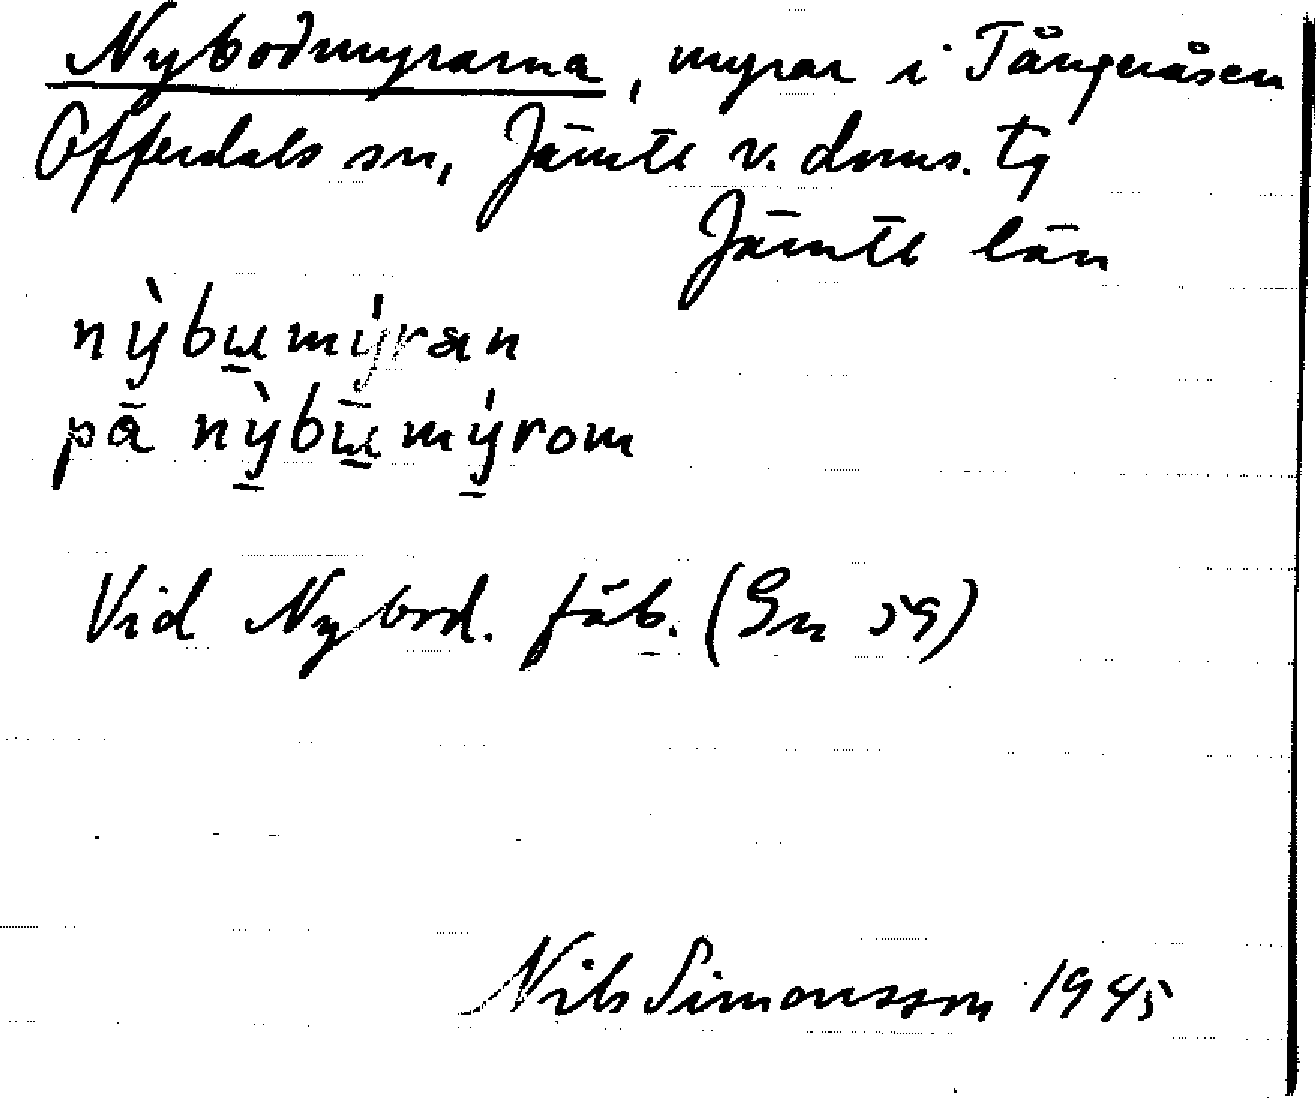 Nybodmyrarna, myrar i Tångeråsen
Offerdals sn, Jämtl v. doms. tg
Jämtl län
nỳbu̲mýran
på nỳbu̲mýrom
Vid Nybod. fäb. (Gn 59)
Nils Simonsson 1945